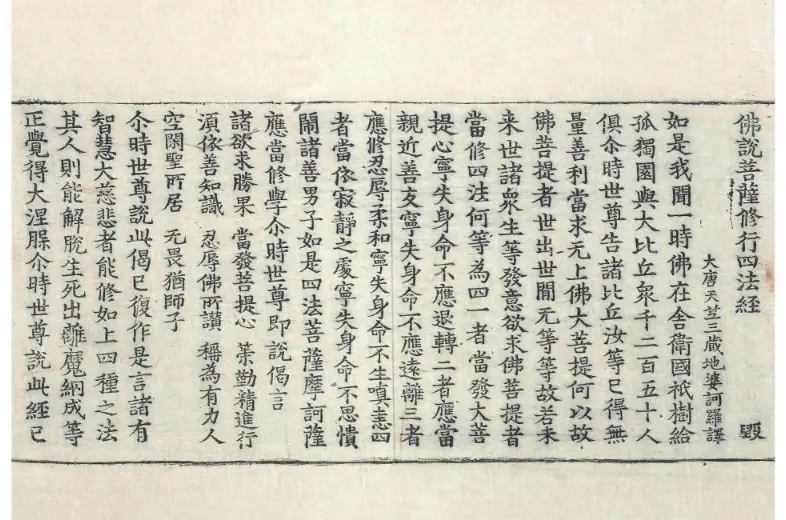 佛說菩薩修行四法經　毁
大唐天竺三藏地婆訶羅譯
如是我聞一時佛在舍衛國祇樹給
孤獨園與大比丘衆千二百五十人
俱尒時世尊告諸比丘汝等已得無
量善利當求无上佛大菩提何以故
佛菩提者世出世間无等等故若未
来世諸衆生等發意欲求佛菩提者
當修四法何等為四一者當發大菩
提心寧失身命不應退轉二者應當
親近善友寧失身命不應遠離三者
應修忍辱柔和寧失身命不生嗔恚四
者當依寂靜之處寧失身命不思憒
閙諸善男子如是四法菩薩摩訶薩
應當修學尒時世尊即說偈言
諸欲求勝果　當發菩提心　策勤精進行
湏依善知識　忍辱佛所讚　稱為有力人
空閑聖所居　无畏猶師子
尒時世尊說此偈已復作是言諸有
智慧大慈悲者能修如上四種之法
其人則能解脫生死出離魔網成等
正覺得大涅槃尒時世尊說此經已